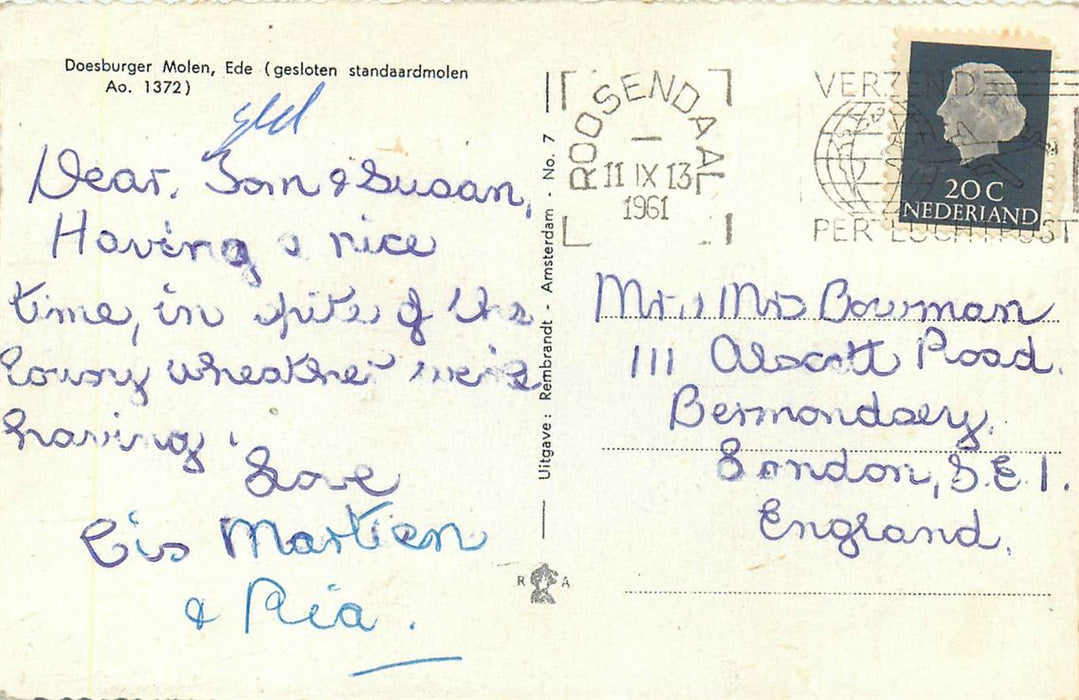 Doesburger Molen, Ede (gesloten standaardmolen
Ao. 1372)
gld
Dear, Tom & Susan,
Having a nice
time, in spite of the
lousy wheather we're
having.
Love
Cis Martien
& Ria.
Uitgave: Rembrandt - Amsterdam - No. 7
R A
ROOSENDAAL
1
11 IX 13
1961
VERZEND
PER LUCHTPOST
20 C
NEDERLAND
Mr., Mrs Bowman
111 Alscott Road.
Bermondsey.
London, S.E.1.
England.